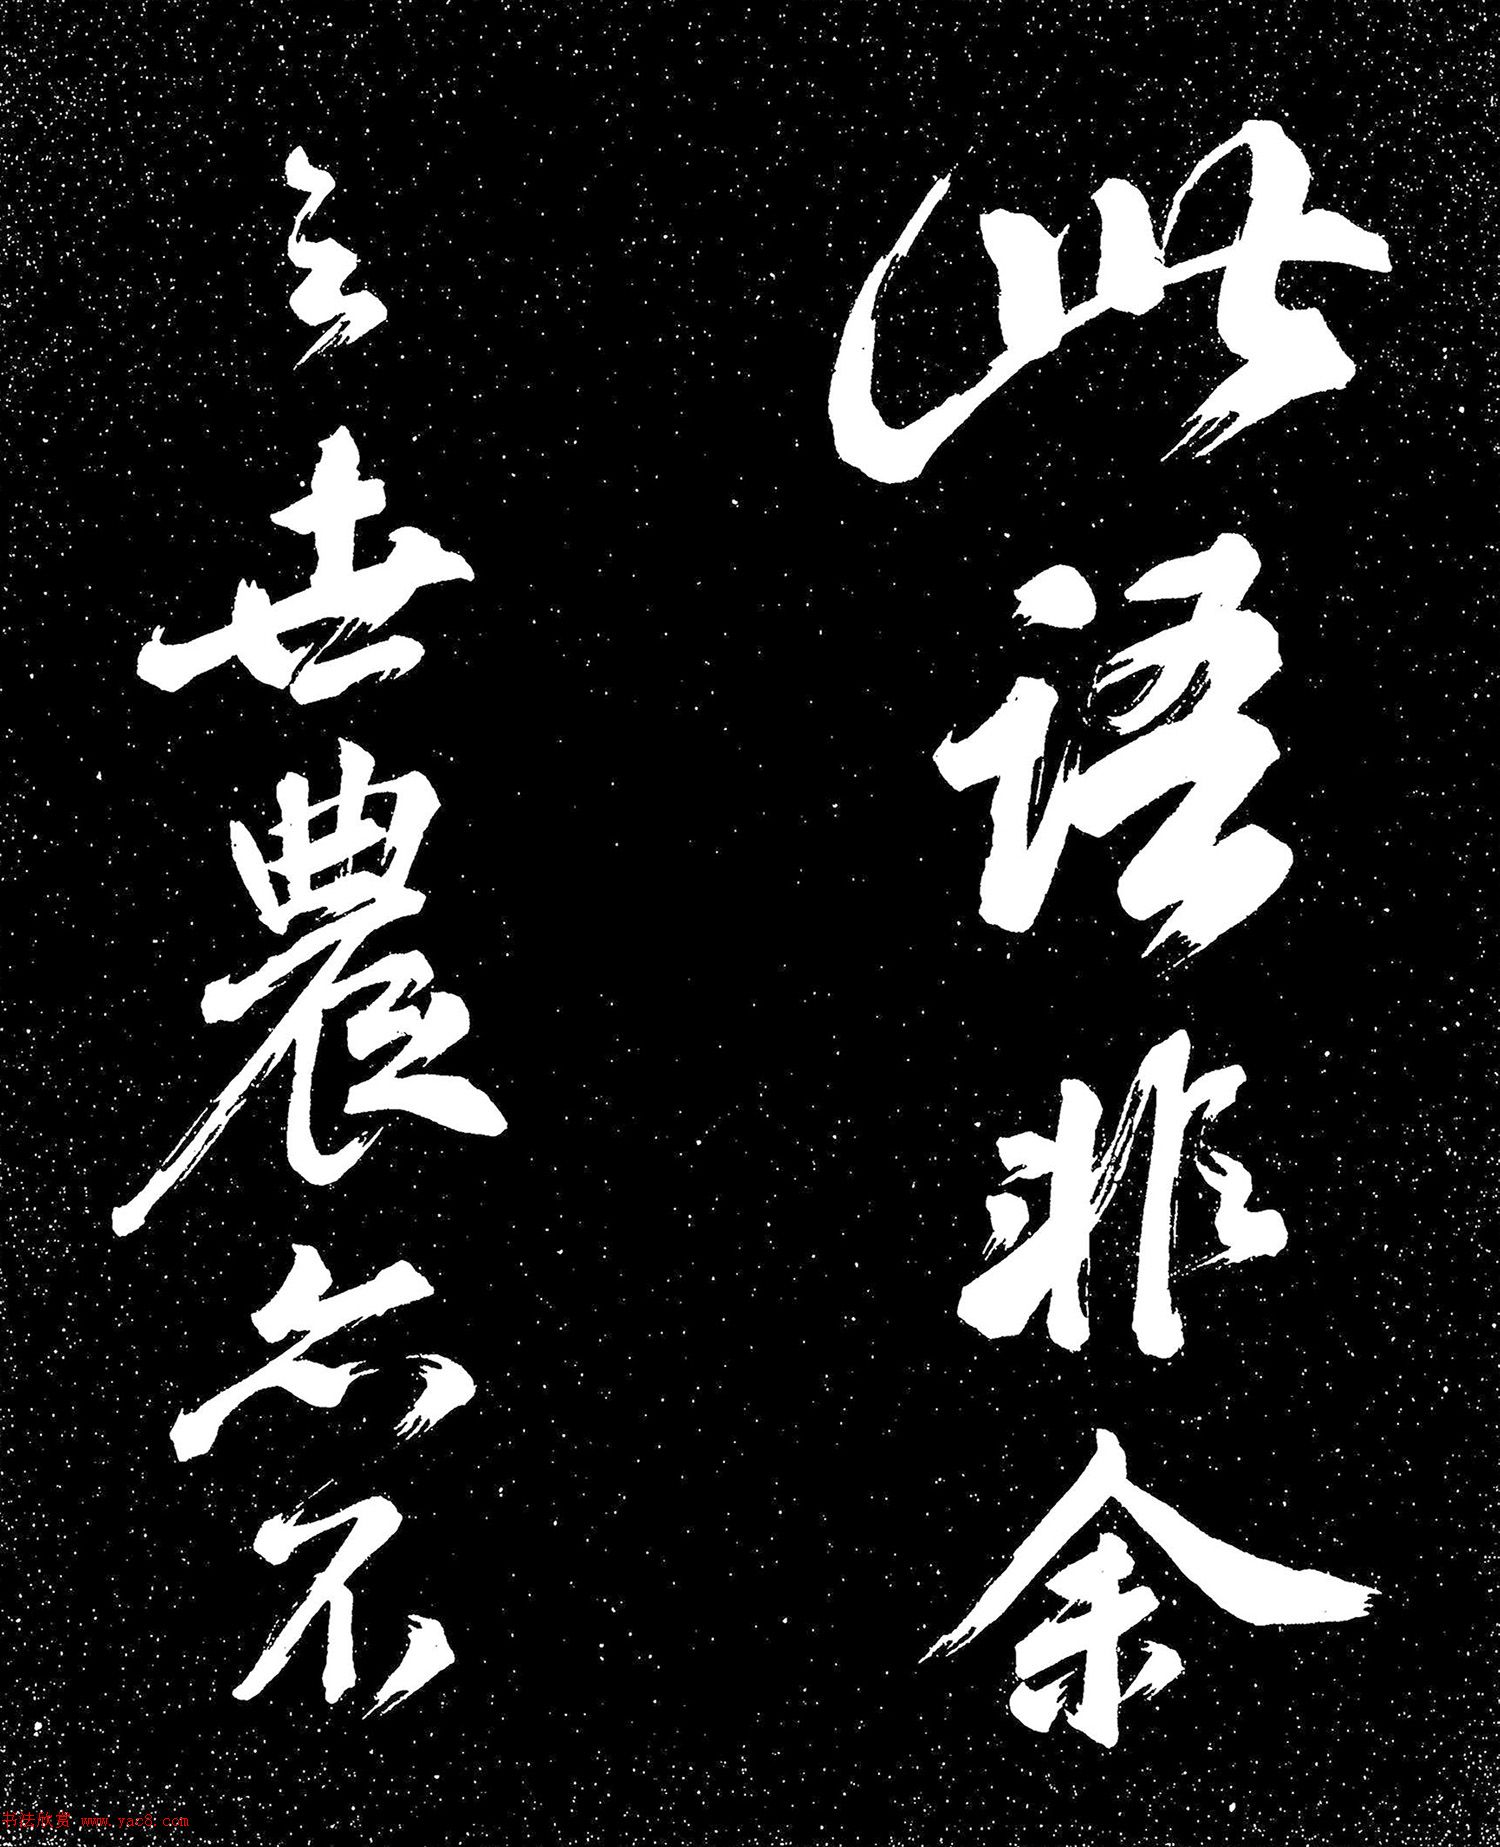 此語非余
之世農亦不
书法欣赏 www.yac8.com